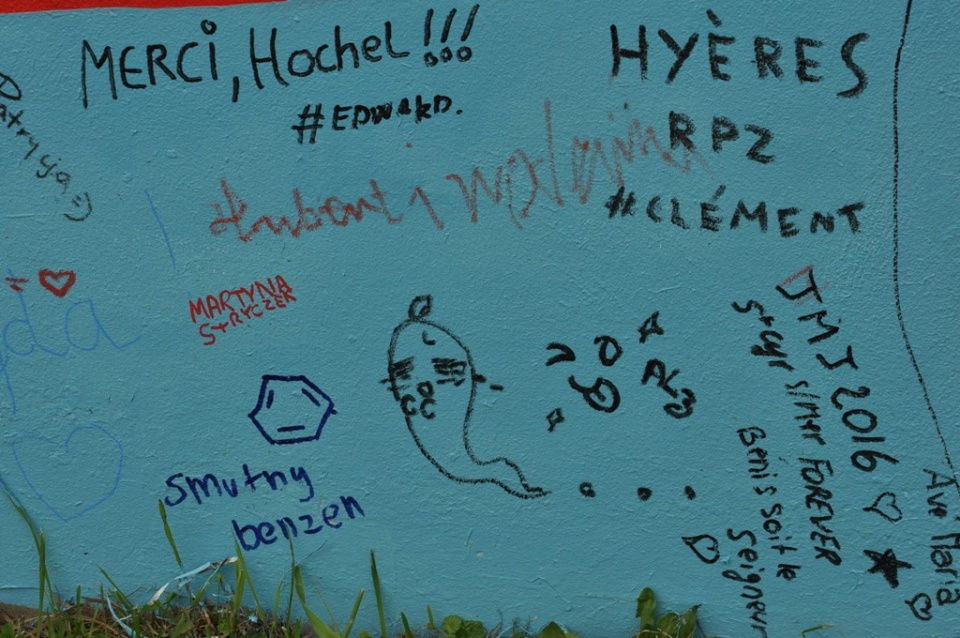 MERCi, Hochel !!!
#EDWARD.
HYÈRES
RPZ
#CLÉMENT
Patrycja :)
MARTYNA
STRYCZEK
smutny
benzen
JMJ 2016
FOREVER
Béni soit le
Seigneur
Ave Maria